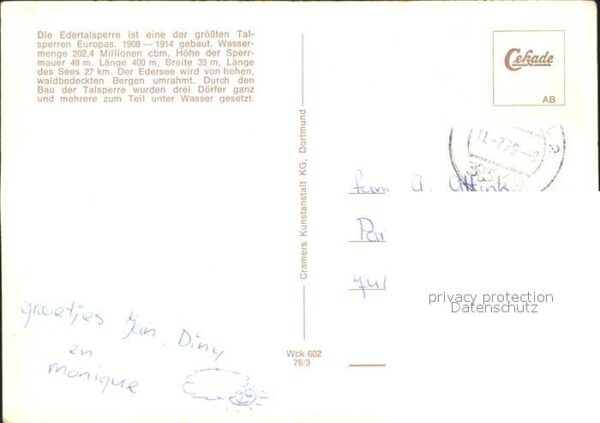 Die Edertalsperre ist eine der größten Tal-
sperren Europas. 1908 — 1914 gebaut. Wasser-
menge 202.4 Millionen cbm, Höhe der Sperr-
mauer 48 m, Länge 400 m, Breite 33 m, Länge
des Sees 27 km. Der Edersee wird von hohen,
waldbedeckten Bergen umrahmt. Durch den
Bau der Talsperre wurden drei Dörfer ganz
und mehrere zum Teil unter Wasser gesetzt.
Cekade
AB
Cramers Kunstanstalt KG, Dortmund
fam A.
privacy protection
Datenschutz
groetjes Jan, Diny
en
monique
Wck 602
76/3